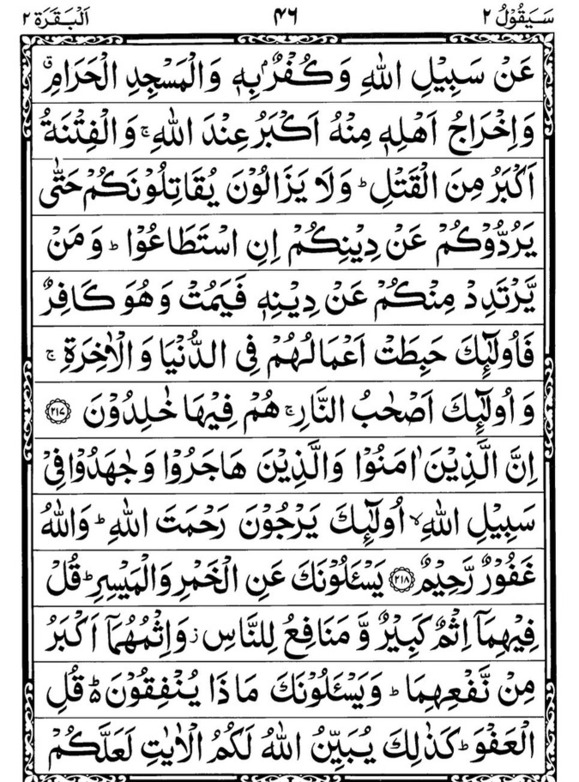 سَيَقُوْلُ ٢ ٤٦ اَلْبَقَرَة ٢
عَنْ سَبِيْلِ اللّٰهِ وَكُفْرٌۢ بِهٖ وَالْمَسْجِدِ الْحَرَامِ ۗ
وَاِخْرَاجُ اَهْلِهٖ مِنْهُ اَكْبَرُ عِنْدَ اللّٰهِ ۚ وَالْفِتْنَةُ
اَكْبَرُ مِنَ الْقَتْلِ ؕ وَلَا يَزَالُوْنَ يُقَاتِلُوْنَكُمْ حَتّٰى
يَرُدُّوْكُمْ عَنْ دِيْنِكُمْ اِنِ اسْتَطَاعُوْا ؕ وَمَنْ
يَّرْتَدِدْ مِنْكُمْ عَنْ دِيْنِهٖ فَيَمُتْ وَهُوَ كَافِرٌ
فَاُولٰٓئِكَ حَبِطَتْ اَعْمَالُهُمْ فِى الدُّنْيَا وَالْاٰخِرَةِ ۚ
وَاُولٰٓئِكَ اَصْحٰبُ النَّارِ ۚ هُمْ فِيْهَا خٰلِدُوْنَ ﴿٢١٧﴾
اِنَّ الَّذِيْنَ اٰمَنُوْا وَالَّذِيْنَ هَاجَرُوْا وَجٰهَدُوْا فِىْ
سَبِيْلِ اللّٰهِ ۙ اُولٰٓئِكَ يَرْجُوْنَ رَحْمَتَ اللّٰهِ ؕ وَاللّٰهُ
غَفُوْرٌ رَّحِيْمٌ ﴿٢١٨﴾ يَسْـَٔلُوْنَكَ عَنِ الْخَمْرِ وَالْمَيْسِرِ ؕ قُلْ
فِيْهِمَآ اِثْمٌ كَبِيْرٌ وَّ مَنَافِعُ لِلنَّاسِ ز وَاِثْمُهُمَآ اَكْبَرُ
مِنْ نَّفْعِهِمَا ؕ وَيَسْـَٔلُوْنَكَ مَاذَا يُنْفِقُوْنَ ۬ؕ قُلِ
الْعَفْوَ ؕ كَذٰلِكَ يُبَيِّنُ اللّٰهُ لَكُمُ الْاٰيٰتِ لَعَلَّكُمْ